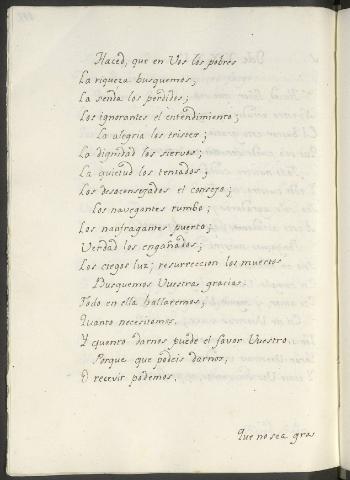 Haced, que en Vos los pobres
La riqueza busquemos;
La senda los perdidos;
Los ignorantes el entendimiento;
La alegria los tristes;
La dignidad los siervos;
La quietud los tentados;
Los desconsejados el consejo;
Los navegantes rumbo;
Los naufragantes puerto;
Verdad los engañados;
Los ciegos luz; resurreccion los muertos.
Busquemos Vuestra gracia:
Todo en ella hallaremos,
Quanto necesitamos,
Y quanto darnos puede el favor Vuestro.
Porque que podeis darnos,
O recevir podemos,
Que no sea gra